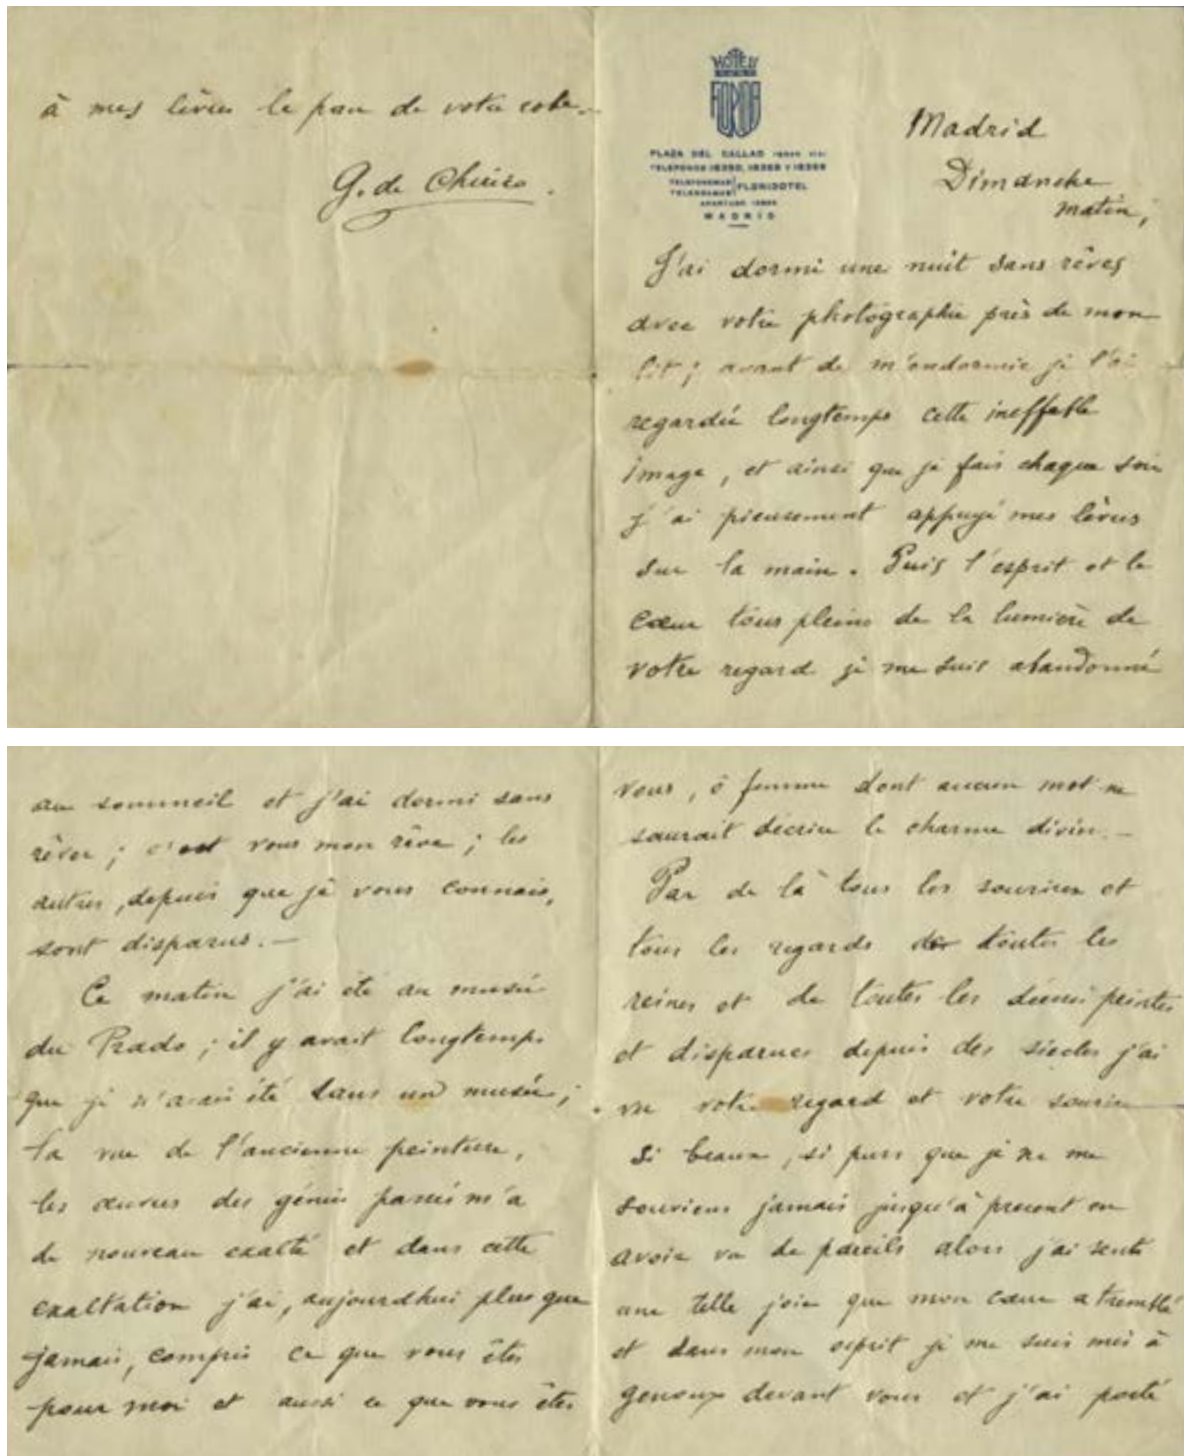 HOTEL
FLORIDA
PLAZA DEL CALLAO
TELEFONOS
TELEFONEMAS
TELEGRAMAS
FLORIDOTEL
APARTADO
MADRID
Madrid
Dimanche
matin,
J'ai dormi une nuit sans rêves
avec votre photographie près de mon
lit ; avant de m'endormir je l'ai
regardée longtemps cette ineffable
image, et ainsi que je fais chaque soir
j'ai pieusement appuyé mes lèvres
sur la main. Puis l'esprit et le
cœur tous pleins de la lumière de
votre regard je me suis abandonné
au sommeil et j'ai dormi sans
rêver ; c'est vous mon rêve ; les
autres, depuis que je vous connais,
sont disparus. —
Ce matin j'ai été au musée
du Prado ; il y avait longtemps
que je n'avais été dans un musée ;
la vue de l'ancienne peinture,
les œuvres des génies passés m'a
de nouveau exalté et dans cette
exaltation j'ai, aujourd'hui plus que
jamais, compris ce que vous êtes
pour moi et aussi ce que vous êtes
vous, ô femme dont aucun mot ne
saurait décrire le charme divin. —
Par de là tous les sourires et
tous les regards de toutes les
reines et de toutes les déesses peintes
et disparues depuis des siècles j'ai
vu votre regard et votre sourire
si beaux, si purs que je ne me
souviens jamais jusqu'à present en
avoir vu de pareils alors j'ai senti
une telle joie que mon cœur a tremblé
et dans mon esprit je me suis mis à
genoux devant vous et j'ai porté
à mes lèvres le pan de votre robe. —
G. de Chirico.